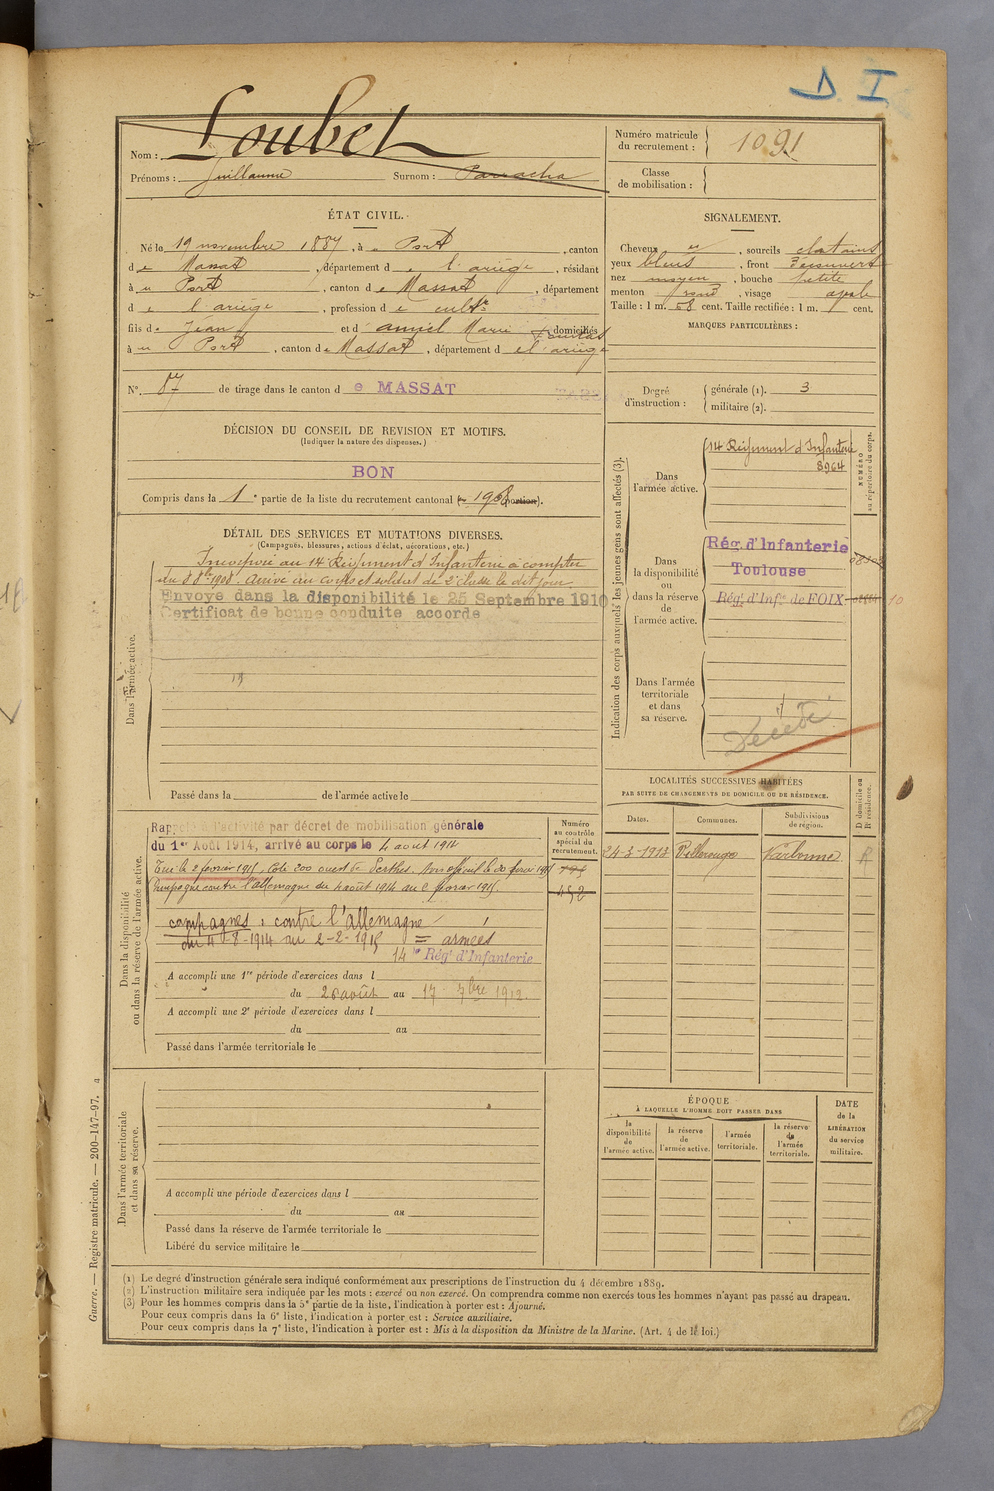 D. I.
Nom : Loubet
Prénoms : Guillaume Surnom : Parracha
Numéro matricule du recrutement : 1091
Classe de mobilisation :
ÉTAT CIVIL.
Né le 19 novembre 1887, à Port, canton
de Massat, département de l'ariège, résidant
à Port, canton de Massat, département
de l'ariège, profession de cultr
fils de Jean et d'amiel Marie domiciliés
à Port, canton de Massat, département de l'ariège
N° 87 de tirage dans le canton de MASSAT
DÉCISION DU CONSEIL DE REVISION ET MOTIFS.
(Indiquer la nature des dispenses.)
BON
Compris dans la 1e partie de la liste du recrutement cantonal (1908 portion).
SIGNALEMENT.
Cheveux et, sourcils chatains
yeux bleus, front découvert
nez moyen, bouche petite
menton rond, visage ovale
Taille : 1 m. 68 cent. Taille rectifiée : 1 m. cent.
MARQUES PARTICULIÈRES :
Degré d'instruction : générale (1). 3
militaire (2).
DÉTAIL DES SERVICES ET MUTATIONS DIVERSES.
(Campagnes, blessures, actions d'éclat, décorations, etc.)
Dans l'armée active.
Incorporé au 14e Régiment d'Infanterie à compter
du 8 8bre 1908. Arrivé au corps et soldat de 2e classe le dit jour
Envoyé dans la disponibilité le 25 Septembre 1910
Certificat de bonne conduite accordé
Passé dans la de l'armée active le
Indication des corps auxquels les jeunes gens sont affectés (3).
NUMÉRO au répertoire du corps.
Dans l'armée active.
14e Régiment d'Infanterie
8964
Dans la disponibilité ou dans la réserve de l'armée active.
Rég. d'Infanterie
Toulouse
Régt d'Infie de FOIX
10
Dans l'armée territoriale et dans sa réserve.
Décédé
Dans la disponibilité ou dans la réserve de l'armée active.
Numéro au contrôle spécial du recrutement.
Rappelé à l'activité par décret de mobilisation générale
du 1er Août 1914, arrivé au corps le 4 aout 1914
Tué le 2 février 1915, Cote 200 ouest de Perthes.
Campagne contre l'allemagne du 4 août 1914 au 2 février 1915.
452
campagnes : contre l'allemagne
du 4-8-1914 au 2-2-1915 = armées
14e Régt d'Infanterie
A accompli une 1re période d'exercices dans l
du 26 août au 17 7bre 1912.
A accompli une 2e période d'exercices dans l
du au
Passé dans l'armée territoriale le
LOCALITÉS SUCCESSIVES HABITÉES
PAR SUITE DE CHANGEMENTS DE DOMICILE OU DE RÉSIDENCE.
Dates. Communes. Subdivisions de région. D domicile ou R résidence.
24-3-1913 Villerouge Narbonne R
Dans l'armée territoriale et dans sa réserve.
A accompli une période d'exercices dans l
du au
Passé dans la réserve de l'armée territoriale le
Libéré du service militaire le
ÉPOQUE
À LAQUELLE L'HOMME DOIT PASSER DANS
la disponibilité de l'armée active.
la réserve de l'armée active.
l'armée territoriale.
la réserve de l'armée territoriale.
DATE de la LIBÉRATION du service militaire.
(1) Le degré d'instruction générale sera indiqué conformément aux prescriptions de l'instruction du 4 décembre 1889.
(2) L'instruction militaire sera indiquée par les mots : exercé ou non exercé. On comprendra comme non exercés tous les hommes n'ayant pas passé au drapeau.
(3) Pour les hommes compris dans la 5e partie de la liste, l'indication à porter est : Ajourné.
Pour ceux compris dans la 6e liste, l'indication à porter est : Service auxiliaire.
Pour ceux compris dans la 7e liste, l'indication à porter est : Mis à la disposition du Ministre de la Marine. (Art. 4 de la loi.)
Guerre. — Registre matricule. — 200-147-97.